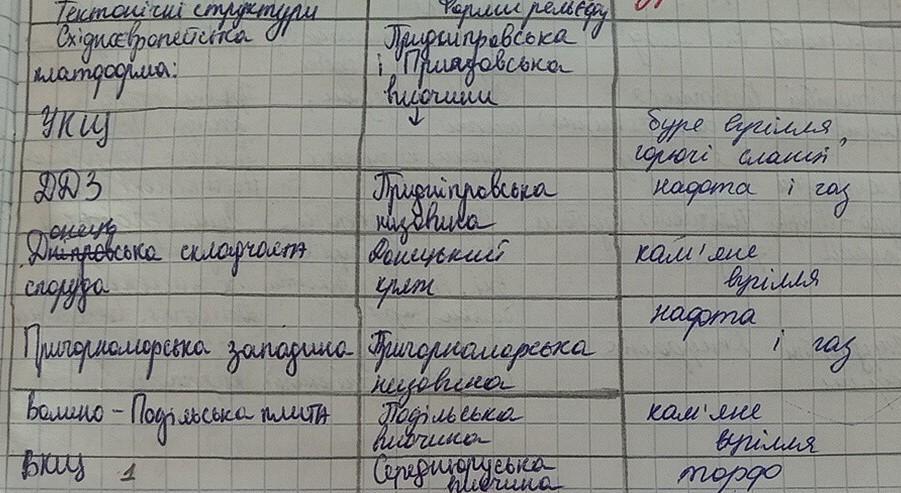 Тектонічні структури Форми рельєфу
Східноєвропейська Придніпровська
платформа: і Приазовська
височини
УКЩ буре вугілля,
горючі сланці
ДДЗ Придніпровська нафта і газ
низовина
онець
Дніпровська складчаста Донецький кам'яне
споруда кряж вугілля
нафта
Причорноморська западина Причорноморська і газ
низовина
Волино-Подільська плита Подільська кам'яне
височина вугілля
ВКЩ 1 Середньоруська торф
височина